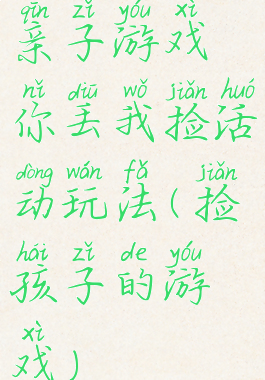 qīn zǐ yóu xì
亲子游戏
nǐ diū wǒ jiǎn huó
你丢我捡活
dòng wán fǎ jiǎn
动玩法(捡
hái zǐ de yóu
孩子的游
xì
戏)